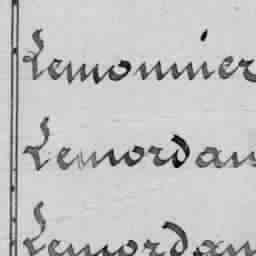 Lemonnier
Lemordan
Lemordan